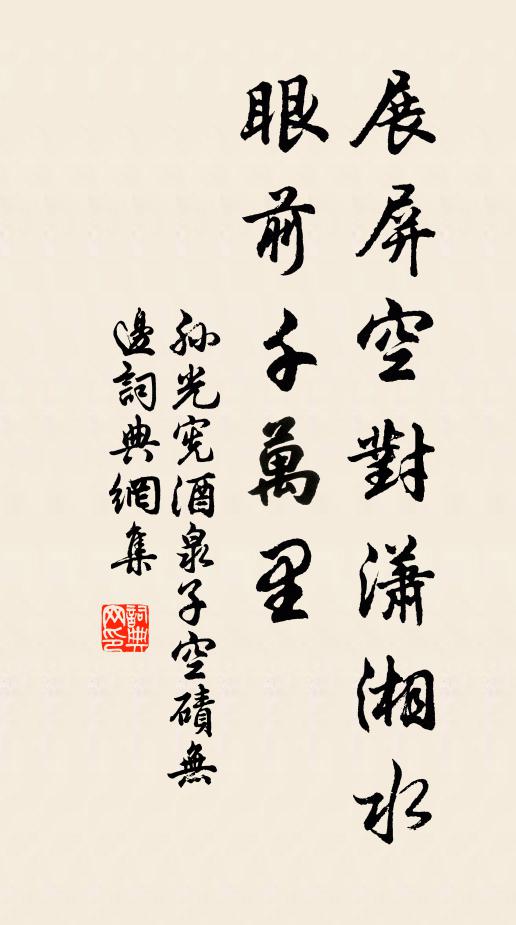 展屏空對瀟湘水
眼前千萬里
孫光憲酒泉子空磧無
邊詞典網集
詞典网印